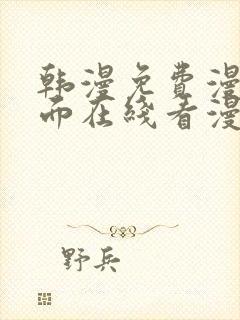 韩漫免费漫
而在线看漫
野兵